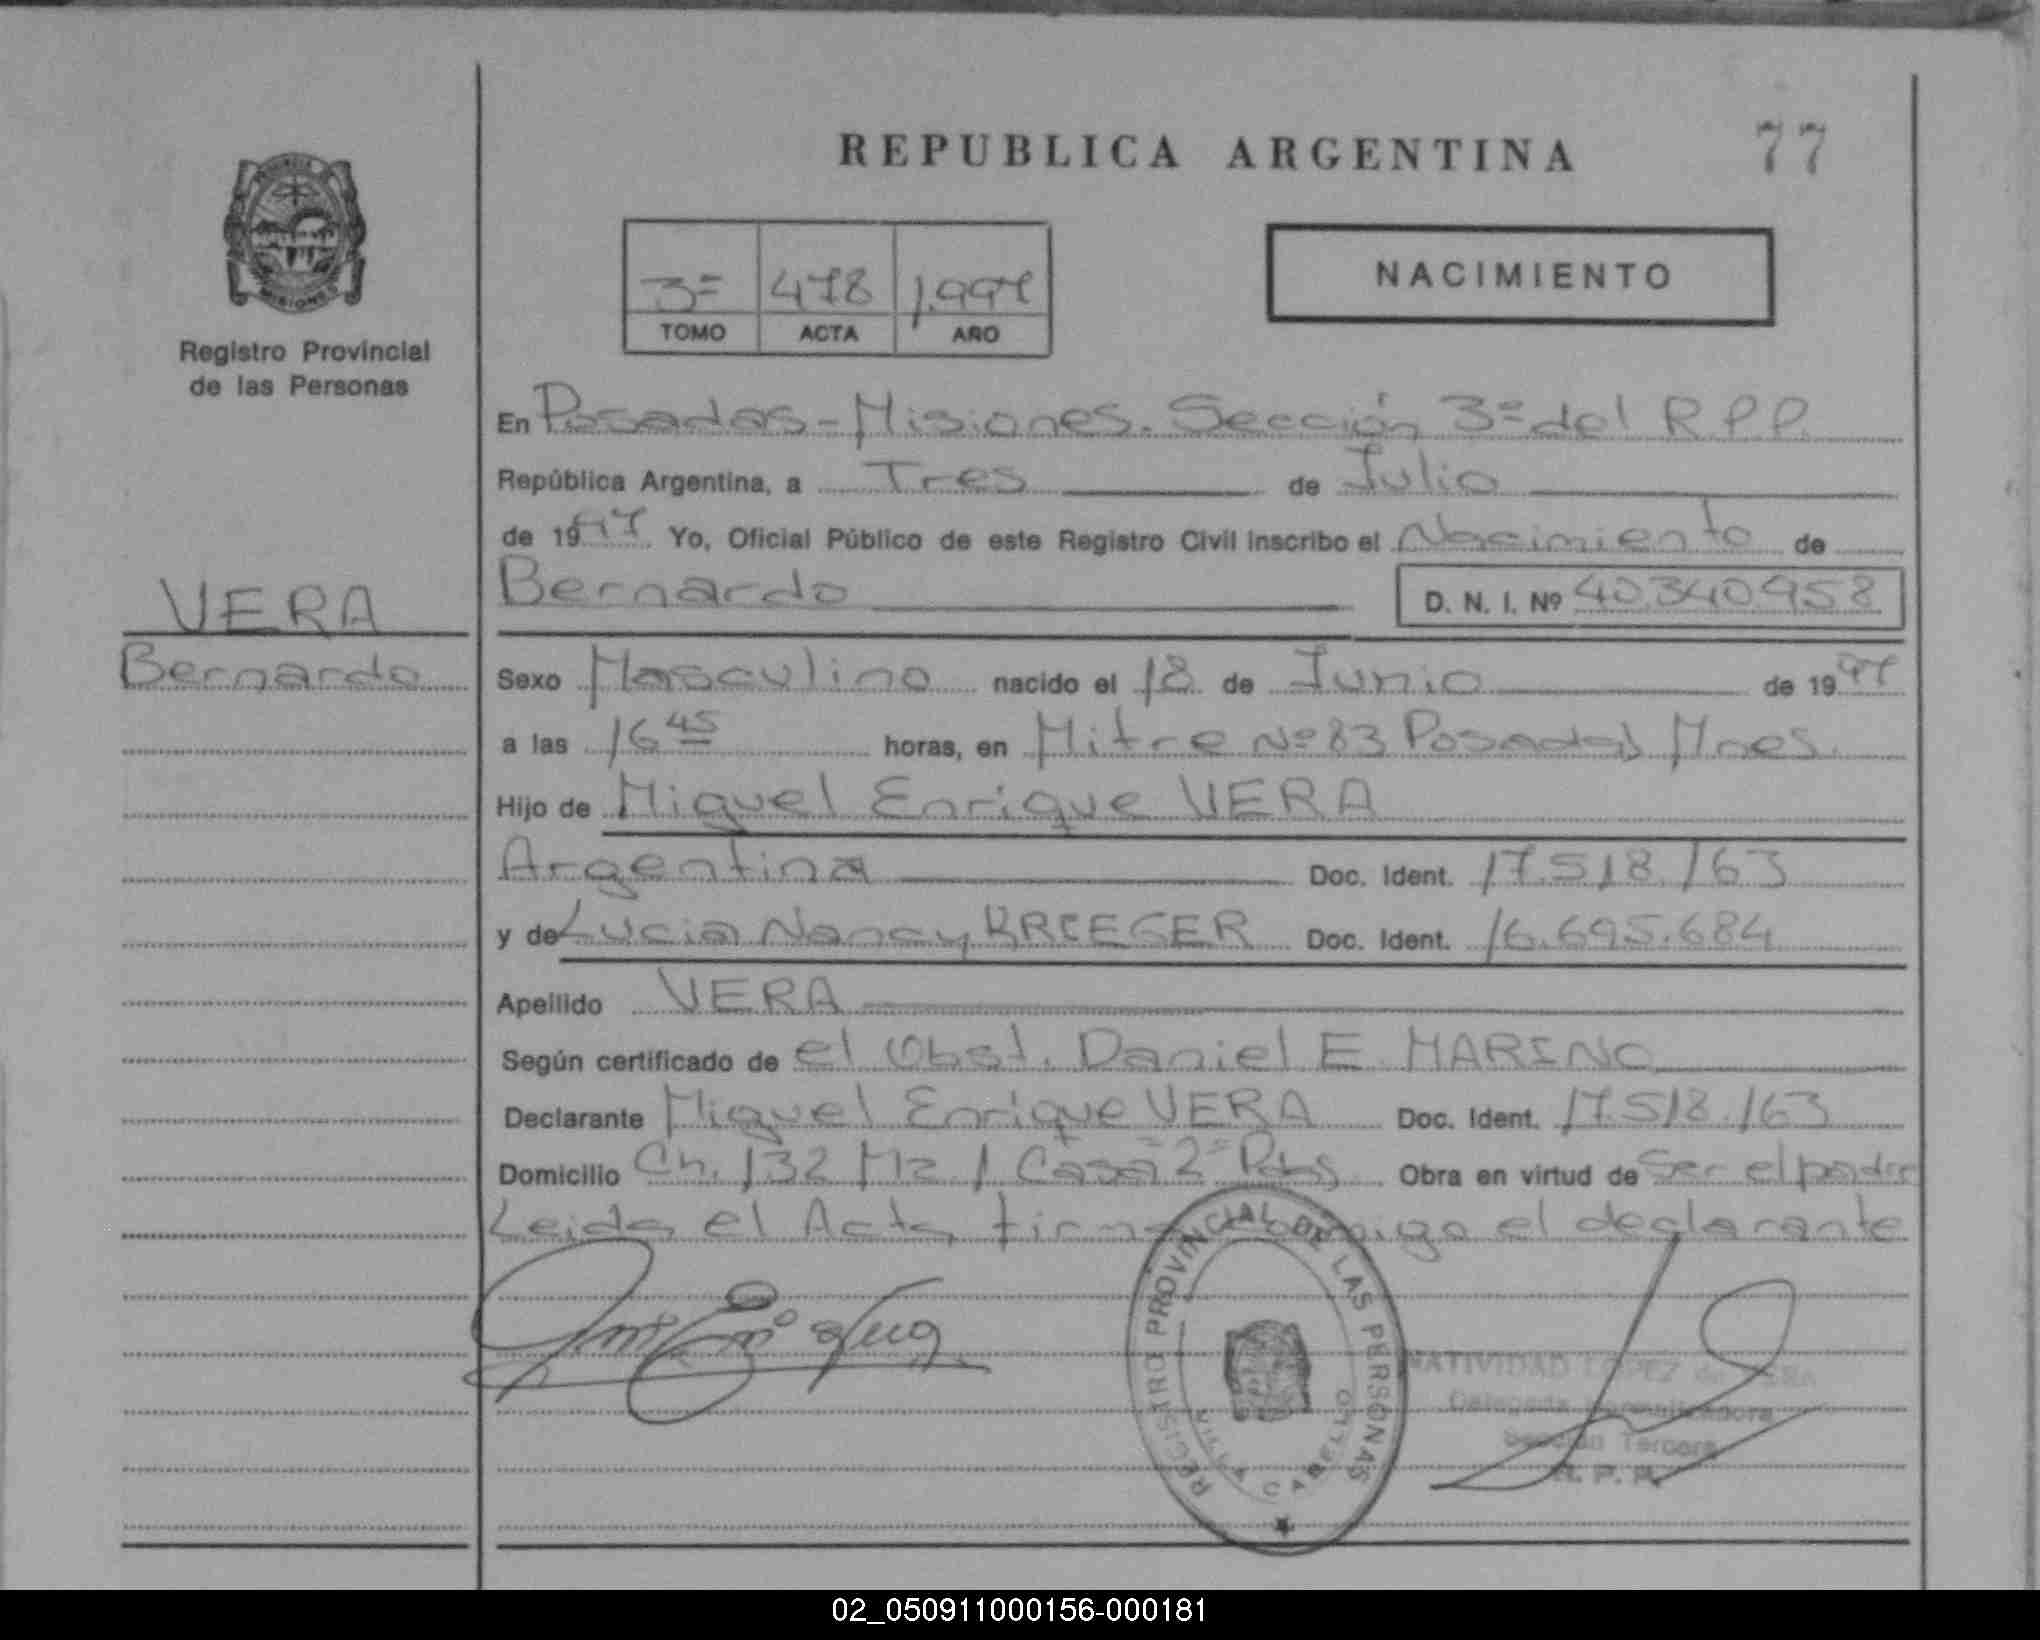 REPUBLICA ARGENTINA
77
PROVINCIA
MISIONES
Registro Provincial
de las Personas
3ª 478 1.997
TOMO ACTA AÑO
NACIMIENTO
En Posadas - Misiones. Sección 3ª del R.P.P.
República Argentina, a Tres de Julio
de 1997 Yo, Oficial Público de este Registro Civil Inscribo el Nacimiento de
Bernardo D. N. I. Nº 40.340.958
VERA
Bernardo
Sexo Masculino nacido el 18 de Junio de 1997
a las 16 45 horas, en Mitre Nº 83 Posadas Mnes.
Hijo de Miguel Enrique VERA
Argentina Doc. Ident. 17.518.163
y de Lucia Nancy KRIEGER Doc. Ident. 16.695.684
Apellido VERA
Según certificado de el Obst. Daniel E. MARINO
Declarante Miguel Enrique VERA Doc. Ident. 17.518.163
Domicilio Ch. 132 Mz 1 Casa 2ª Pdas Obra en virtud de Ser el padre
Leida el Acta, firma conmigo el declarante
REGISTRO PROVINCIAL DE LAS PERSONAS
VILLA CABELLO
NATIVIDAD LOPEZ de
Delegada Normalizadora
Sección Tercera
R. P. P.
02_050911000156-000181